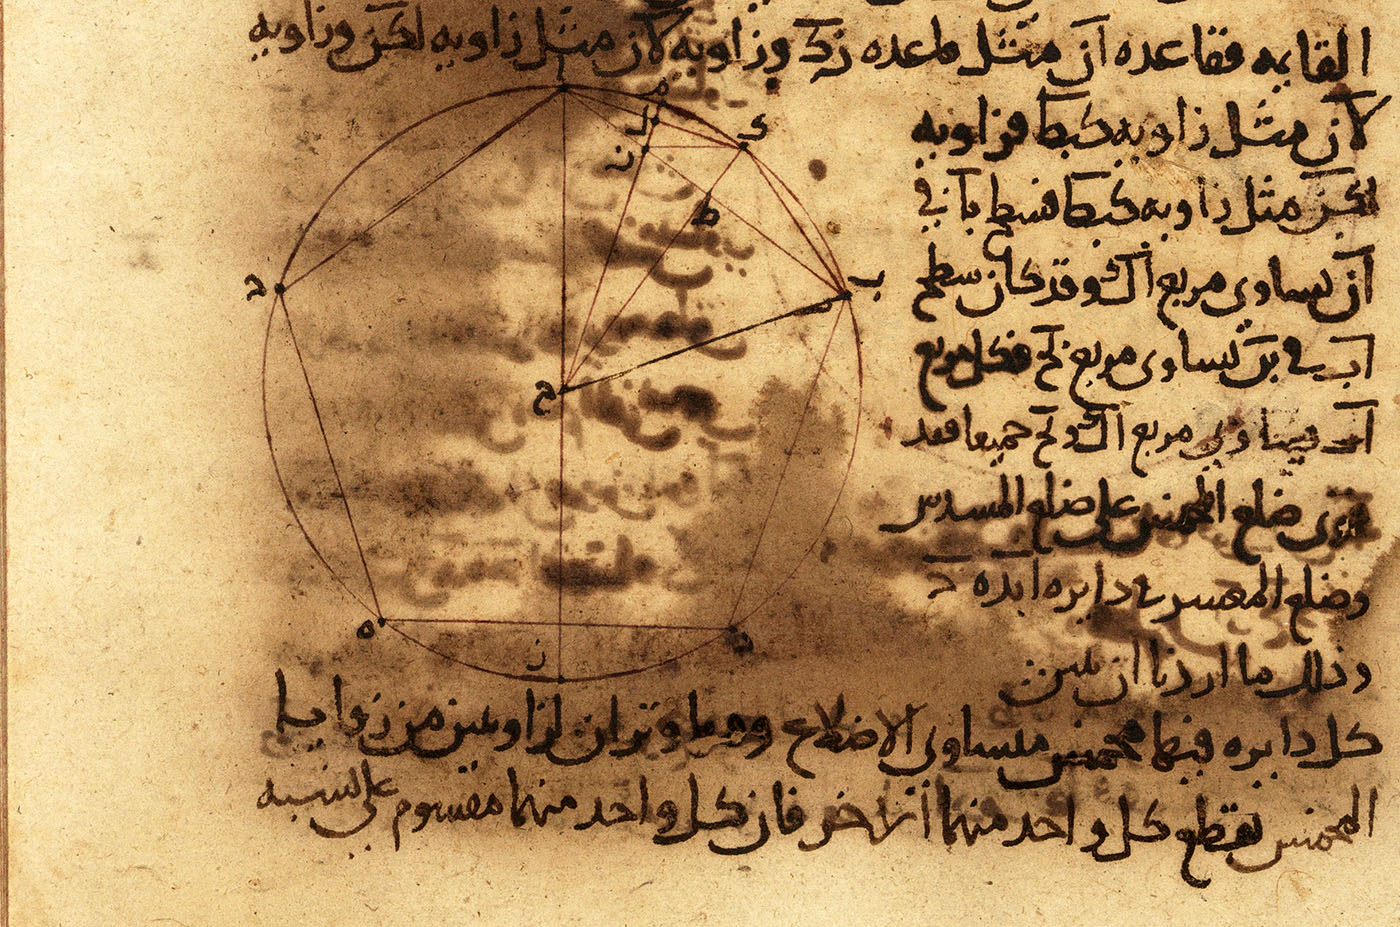 القايمه فقاعده ان مثل قاعده زك وزاويه لان مثل زاويه لكن وزاويه
لان مثل زاويه كبطا فزاويه
لكن مثل زاويه كبطا فسطح با في
ان يساوى مربع اك وقد كان سطح
اب في بن يساوى مربع بح فكل مربع
اب يساوى مربع اك وبح جميعا فقد
ضلع المخمس على ضلع المسدس
وضلع المعشر في دايره ابده
وذلك ما اردنا ان نبين
كل دايره فيها مخمس متساوى الاضلاع ووتران لزاويتين من زوايا
المخمس يقطع كل واحد منهما الاخر فان كل واحد منهما مقسوم على نسبه
ا
م
ل
ك
ن
ط
ب
ح
ه
ز